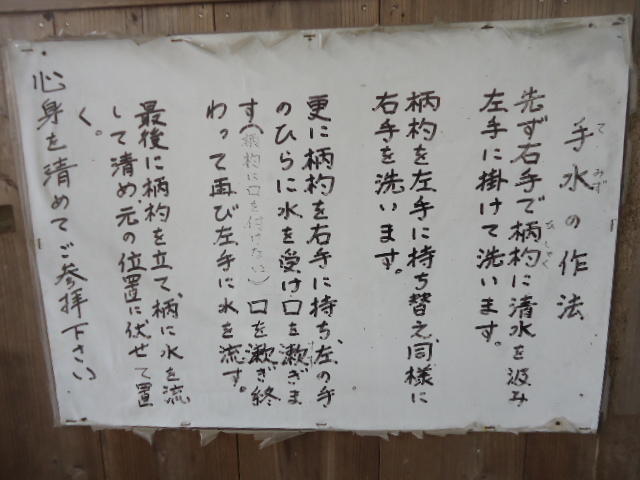 手水の作法
先ず右手で柄杓に清水を汲み
左手に掛けて洗います。
柄杓を左手に持ち替え、同様に
右手を洗います。
更に柄杓を右手に持ち、左の手
のひらに水を受け口を漱ぎま
す(柄杓に口を付けない)口を漱ぎ終
わって再び左手に水を流す。
最後に柄杓を立て、柄に水を流
して清め、元の位置に伏せて置
く。
心身を清めてご参拝下さい